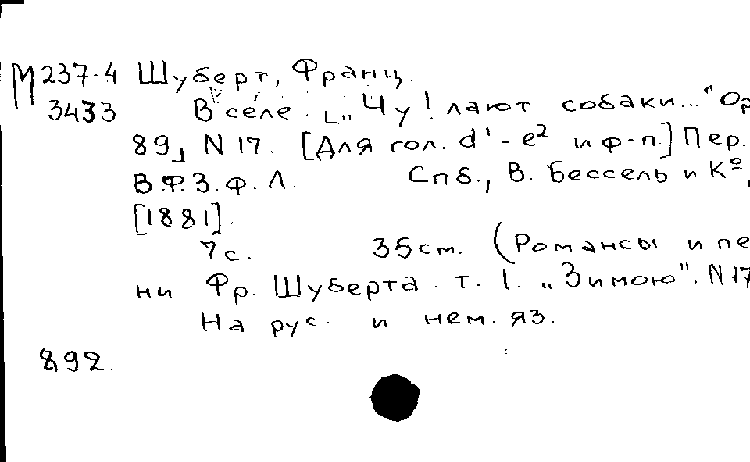 М 237-4 Шуберт, Франц.
3433 В селе. [„Чу! лают собаки..." Op.
89] N 17. [Для гол. d¹ - e² и ф-п.] Пер.
В.Ф.З.Ф.Л. Спб., В. Бессель и Кº,
[1881].
7 с. 35 см. (Романсы и пе
ни Фр. Шуберта. т. 1. „Зимою". N 17
На рус. и нем. яз.
892